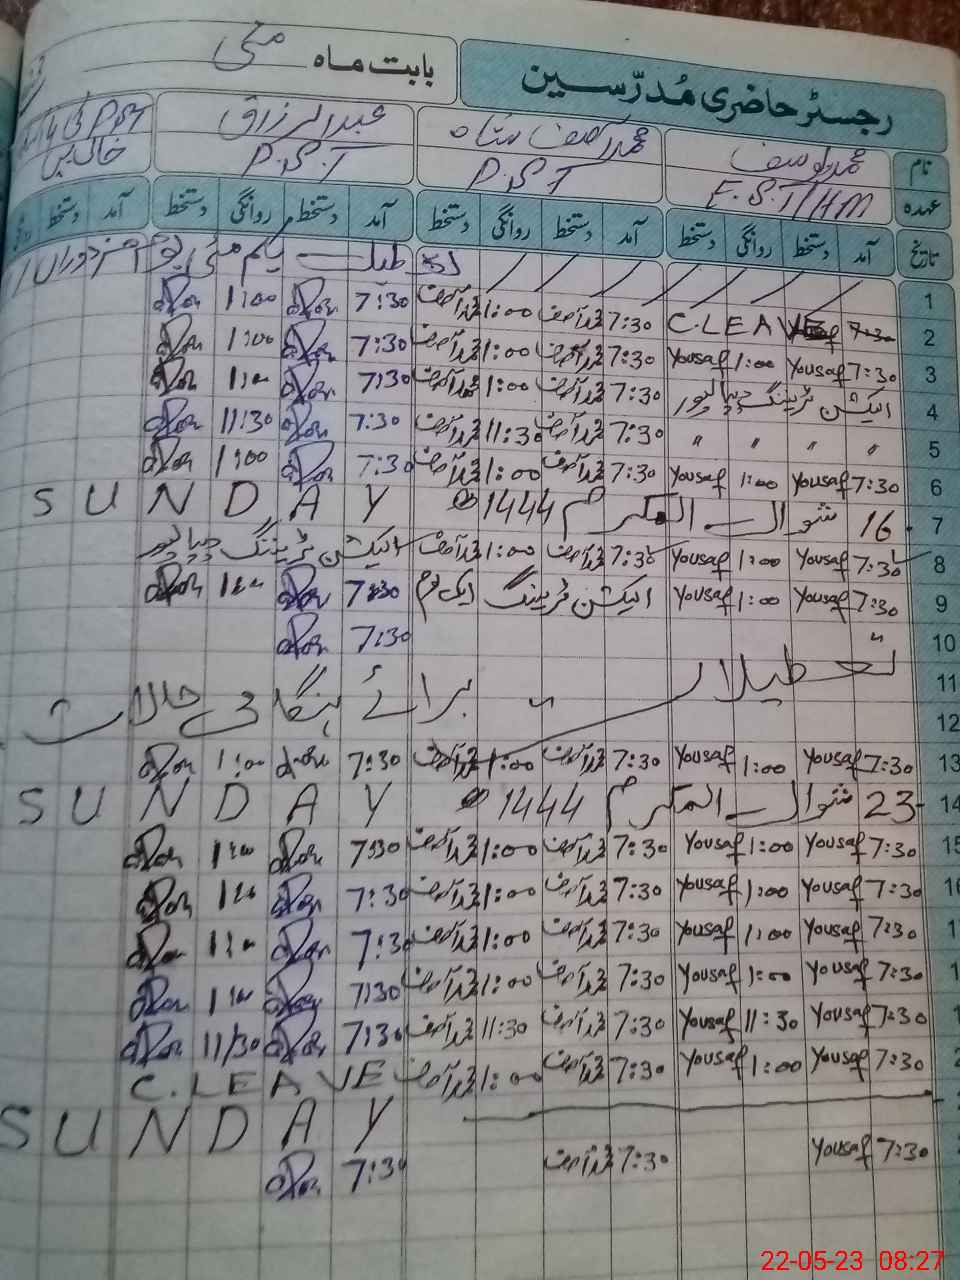 رجسٹر حاضری مُدرّسین بابت ماہ مئی
نام محمد یوسف محمد آصف شاہ عبدالرزاق
عہدہ E.S.T/HM P.S.T P.S.T خالی ہیں
تاریخ آمد دستخط روانگی دستخط آمد دستخط روانگی دستخط آمد دستخط روانگی دستخط آمد دستخط
1 تعطیل یکم مئی یوم مزدوراں
2 7:30 C.LEAVE 7:30 محمد آصف 1:00 محمد آصف 7:30 1:00
3 7:30 Yousaf 1:00 Yousaf 7:30 محمد آصف 1:00 محمد آصف 7:30 1:00
4 الیکشن ٹریننگ دیپالپور 7:30 محمد آصف 1:00 محمد آصف 7:30 1:00
5 " " " " 7:30 محمد آصف 11:30 محمد آصف 7:30 11:30
6 7:30 Yousaf 1:00 Yousaf 7:30 محمد آصف 1:00 محمد آصف 7:30 1:00
7 16 شوال المکرم 1444ھ SUNDAY
8 7:30 Yousaf 1:00 Yousaf 7:30 محمد آصف 1:00 محمد آصف الیکشن ٹریننگ دیپالپور
9 7:30 Yousaf 1:00 Yousaf الیکشن ٹریننگ 7:30 1:00
10 7:30
11 تعطیلات
12 برائے ہنگامی حالات
13 7:30 Yousaf 1:00 Yousaf 7:30 محمد آصف 1:00 محمد آصف 7:30 1:00
14 23 شوال المکرم 1444ھ SUNDAY
15 7:30 Yousaf 1:00 Yousaf 7:30 محمد آصف 1:00 محمد آصف 7:30 1:00
7:30 Yousaf 1:00 Yousaf 7:30 محمد آصف 1:00 محمد آصف 7:30 1:00
7:30 Yousaf 1:00 Yousaf 7:30 محمد آصف 1:00 محمد آصف 7:30 1:00
7:30 Yousaf 1:00 Yousaf 7:30 محمد آصف 1:00 محمد آصف 7:30 1:00
7:30 Yousaf 11:30 Yousaf 7:30 محمد آصف 11:30 محمد آصف 7:30 11/30
7:30 Yousaf 1:00 Yousaf 7:30 محمد آصف 1:00 محمد آصف C.LEAVE
SUNDAY
7:30 Yousaf 7:30 محمد آصف 7:30
22-05-23 08:27